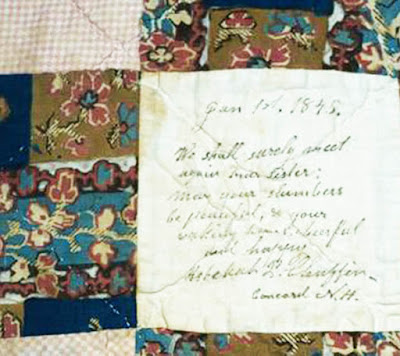 Jan 1st. 1845.
We shall surely meet
again dear sister;
may your slumbers
be peaceful, & your
waking hours cheerful
and happy
Rebekah
Concord N.H.